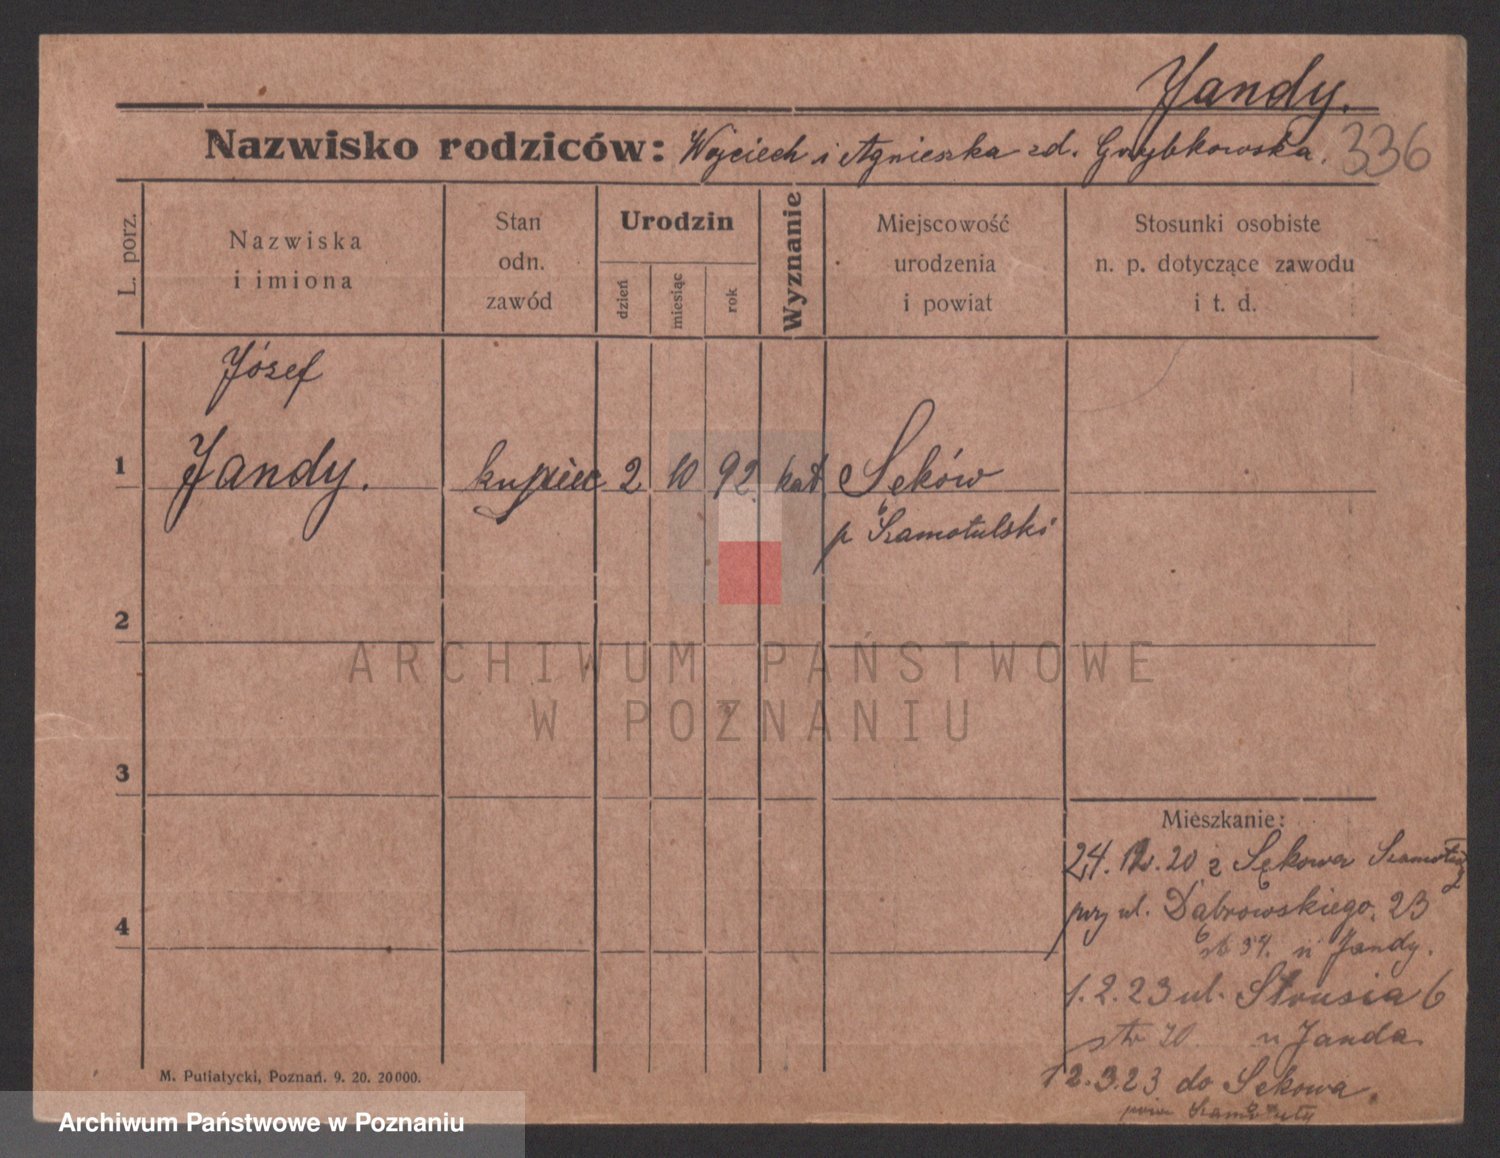 Jandy.
Nazwisko rodziców: Wojciech i Agnieszka zd. Grzybkowska.
336
L. porz.
Nazwiska
i imiona
Stan
odn.
zawód
Urodzin
dzień
miesiąc
rok
Wyznanie
Miejscowość
urodzenia
i powiat
Stosunki osobiste
n. p. dotyczące zawodu
i t. d.
Józef
1 Jandy. kupiec 2 10 92 kat Sęków
p Szamotulski
2
3
4
Mieszkanie:
24. 12. 20 z Sękowa
przy ul. Dąbrowskiego. 23
u Jandy.
1. 2. 23 ul. Strusia 6
str u Janda
12. 3. 23 do Sękowa.
pow Szamotuły
M. Putiatycki, Poznań. 9. 20. 20000.
ARCHIWUM PAŃSTWOWE
W POZNANIU
Archiwum Państwowe w Poznaniu